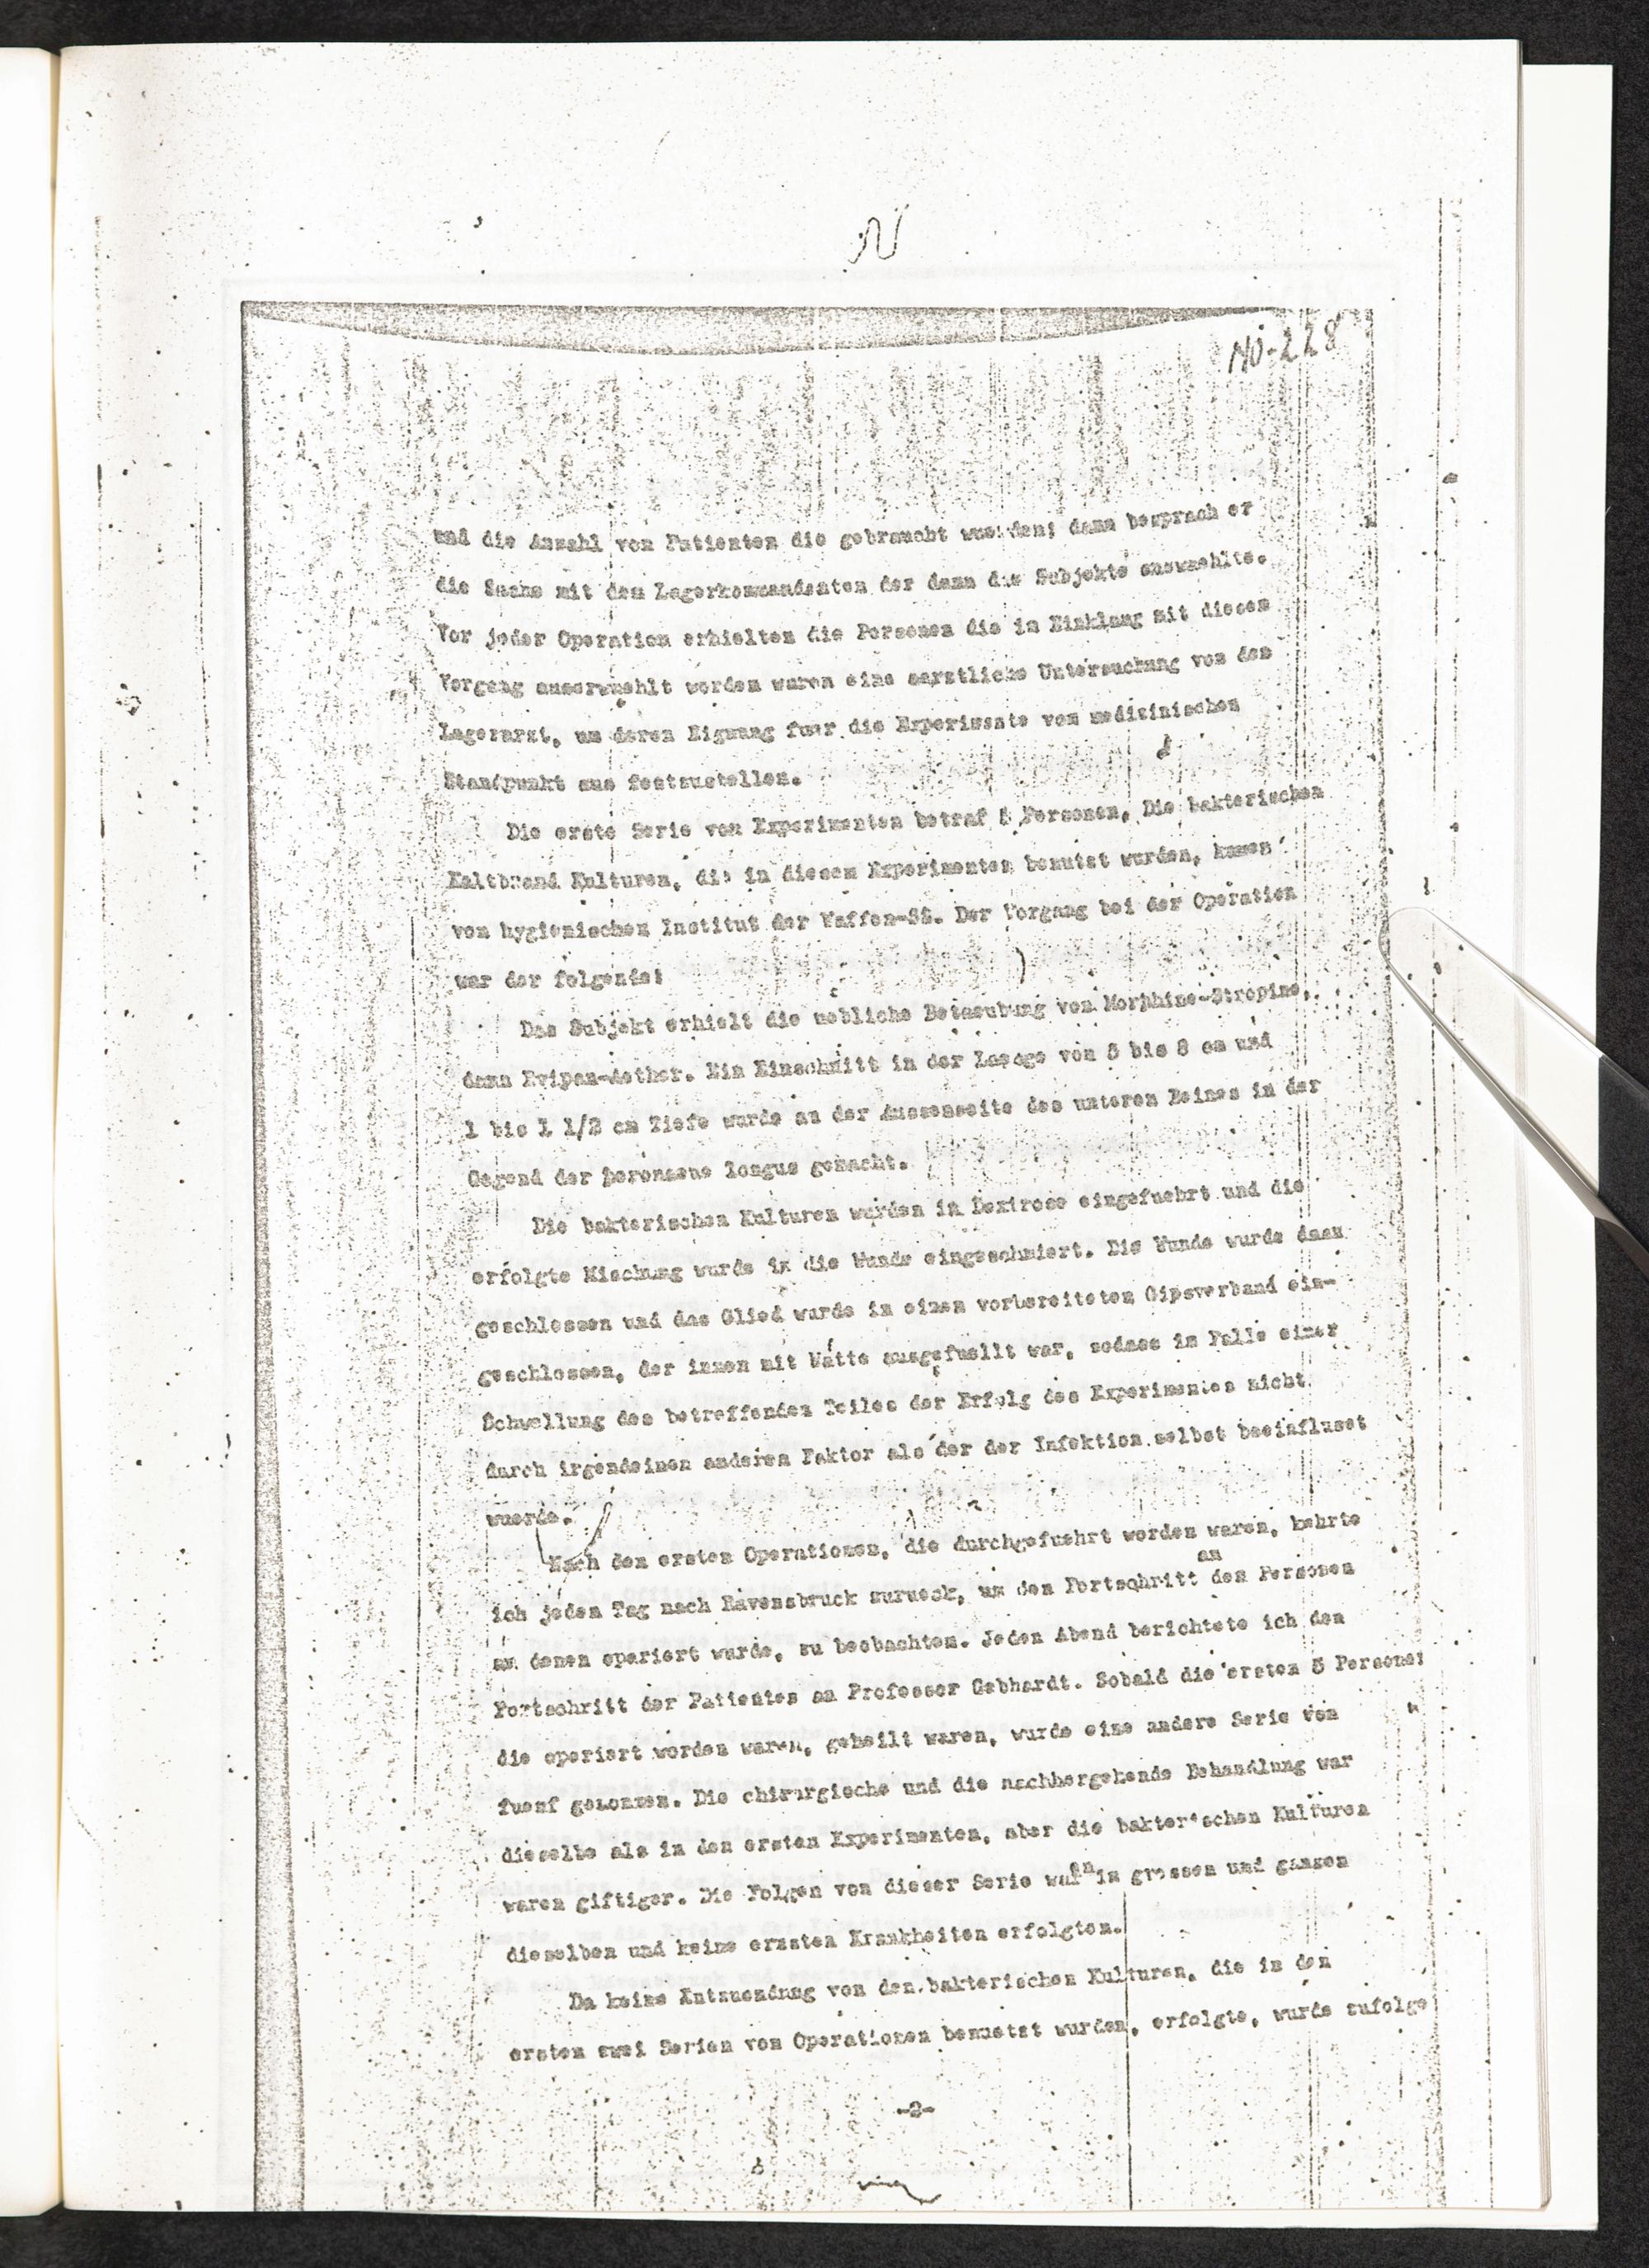 NO-228
und die Anzahl von Patienten die gebraucht wuerden; dann besprach er
die Sache mit dem Lagerkommandanten der dann die Subjekte auswaehlte.
Vor jeder Operation erhielten die Personen die in Einklang mit diesem
Vorgang auserwaehlt worden waren eine aerztliche Untersuchung von dem
Lagerarzt, um deren Eignung fuer die Experimente vom medizinischen
Standpunkt aus festzustellen.
Die erste Serie von Experimenten betraf 5 Personen. Die bakterischen
Kaltbrand Kulturen, die in diesem Experimenten benutzt wurden, kamen
vom hygienischen Institut der Waffen-SS. Der Vorgang bei der Operation
war der folgende:
Das Subjekt erhielt die uebliche Betaeubung von Morphine-Atropine,
dann Evipan-Aether. Ein Einschnitt in der Laenge von 5 bis 8 cm und
1 bis 1 1/2 cm Tiefe wurde an der Aussenseite des unteren Beines in der
Gegend der longus gemacht.
Die bakterischen Kulturen wurden in Dextrose eingefuehrt und die
erfolgte Mischung wurde in die Wunde eingeschmiert. Die Wunde wurde dann
geschlossen und das Glied wurde in einen vorbereiteten Gipsverband ein-
geschlossen, der innen mit Watte ausgefuellt war, sodass im Falle einer
Schwellung des betreffenden Teiles der Erfolg des Experimentes nicht
durch irgendeinen anderen Faktor als der der Infektion selbst beeinflusst
wuerde.
Nach den ersten Operationen, die durchgefuehrt worden waren, kehrte
ich jeden Tag nach Ravensbruck zurueck, um den Fortschritt an den Personen
an denen operiert wurde, zu beobachten. Jeden Abend berichtete ich den
Fortschritt der Patienten an Professor Gebhardt. Sobald die ersten 5 Personen
die operiert worden waren, geheilt waren, wurde eine andere Serie von
fuenf genommen. Die chirurgische und die nachhergehende Behandlung war
dieselbe als in den ersten Experimenten, aber die bakterischen Kulturen
waren giftiger. Die Folgen von dieser Serie waren in grossen und ganzen
dieselben und keine ernsten Krankheiten erfolgten.
Da keine Entzuendung von den bakterischen Kulturen, die in den
ersten zwei Serien von Operationen benuetzt wurden, erfolgte, wurde zufolge
-2-